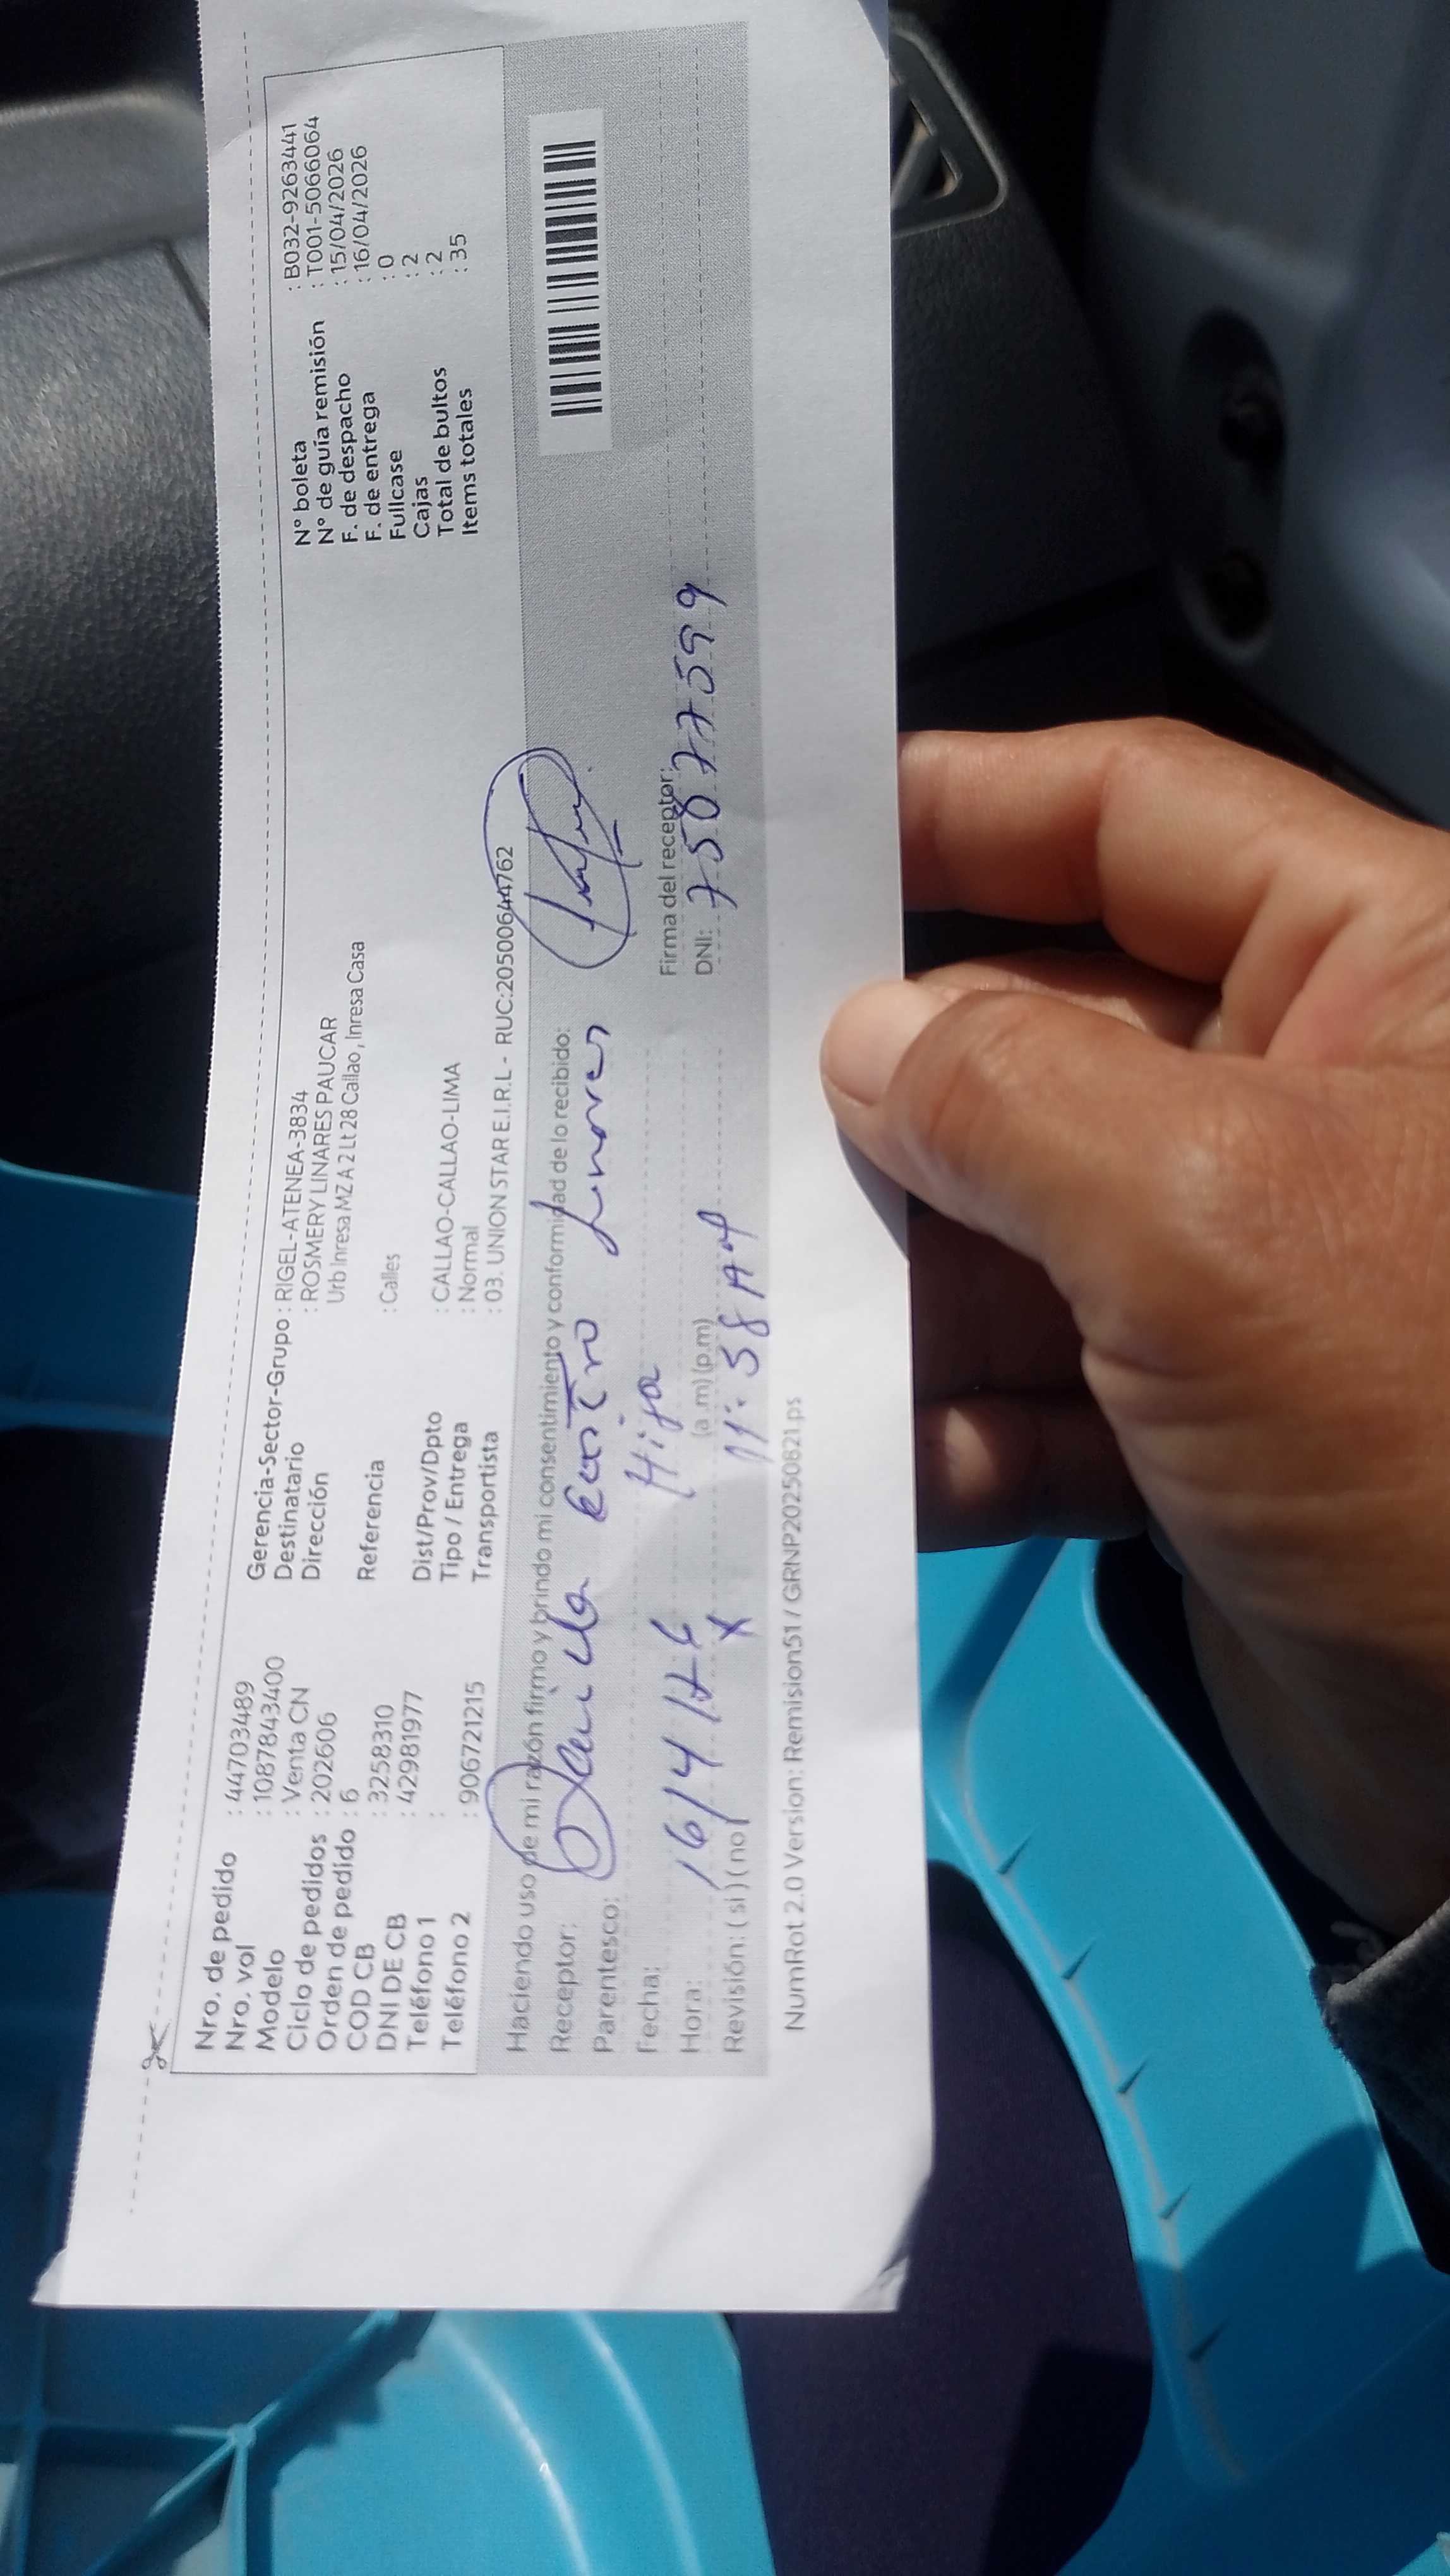 Nro. de pedido : 44703489
Nro. vol : 1087843400
Modelo : Venta CN
Ciclo de pedidos : 202606
Orden de pedido : 6
COD CB : 3258310
DNI DE CB : 42981977
Teléfono 1 :
Teléfono 2 : 906721215
Gerencia-Sector-Grupo : RIGEL-ATENEA-3834
Destinatario : ROSMERY LINARES PAUCAR
Dirección Urb Inresa MZ A 2 Lt 28 Callao , Inresa Casa
Referencia : Calles
Dist/Prov/Dpto : CALLAO-CALLAO-LIMA
Tipo / Entrega : Normal
Transportista : 03. UNION STAR E.I.R.L - RUC:20500644762
N° boleta : B032-9263441
N° de guía remisión : T001-5066064
F. de despacho : 15/04/2026
F. de entrega : 16/04/2026
Fullcase : 0
Cajas : 2
Total de bultos : 2
Items totales : 35
Haciendo uso de mi razón firmo y brindo mi consentimiento y conformidad de lo recibido:
Receptor: Castro Linares
Parentesco: Hija
Fecha: 16/4/26
Hora: (a.m) (p.m) 11:58 AM
Revisión: ( si ) ( no ) X
Firma del receptor:
DNI: 75877599
NumRot 2.0 Version: Remision51 / GRNP20250821.ps